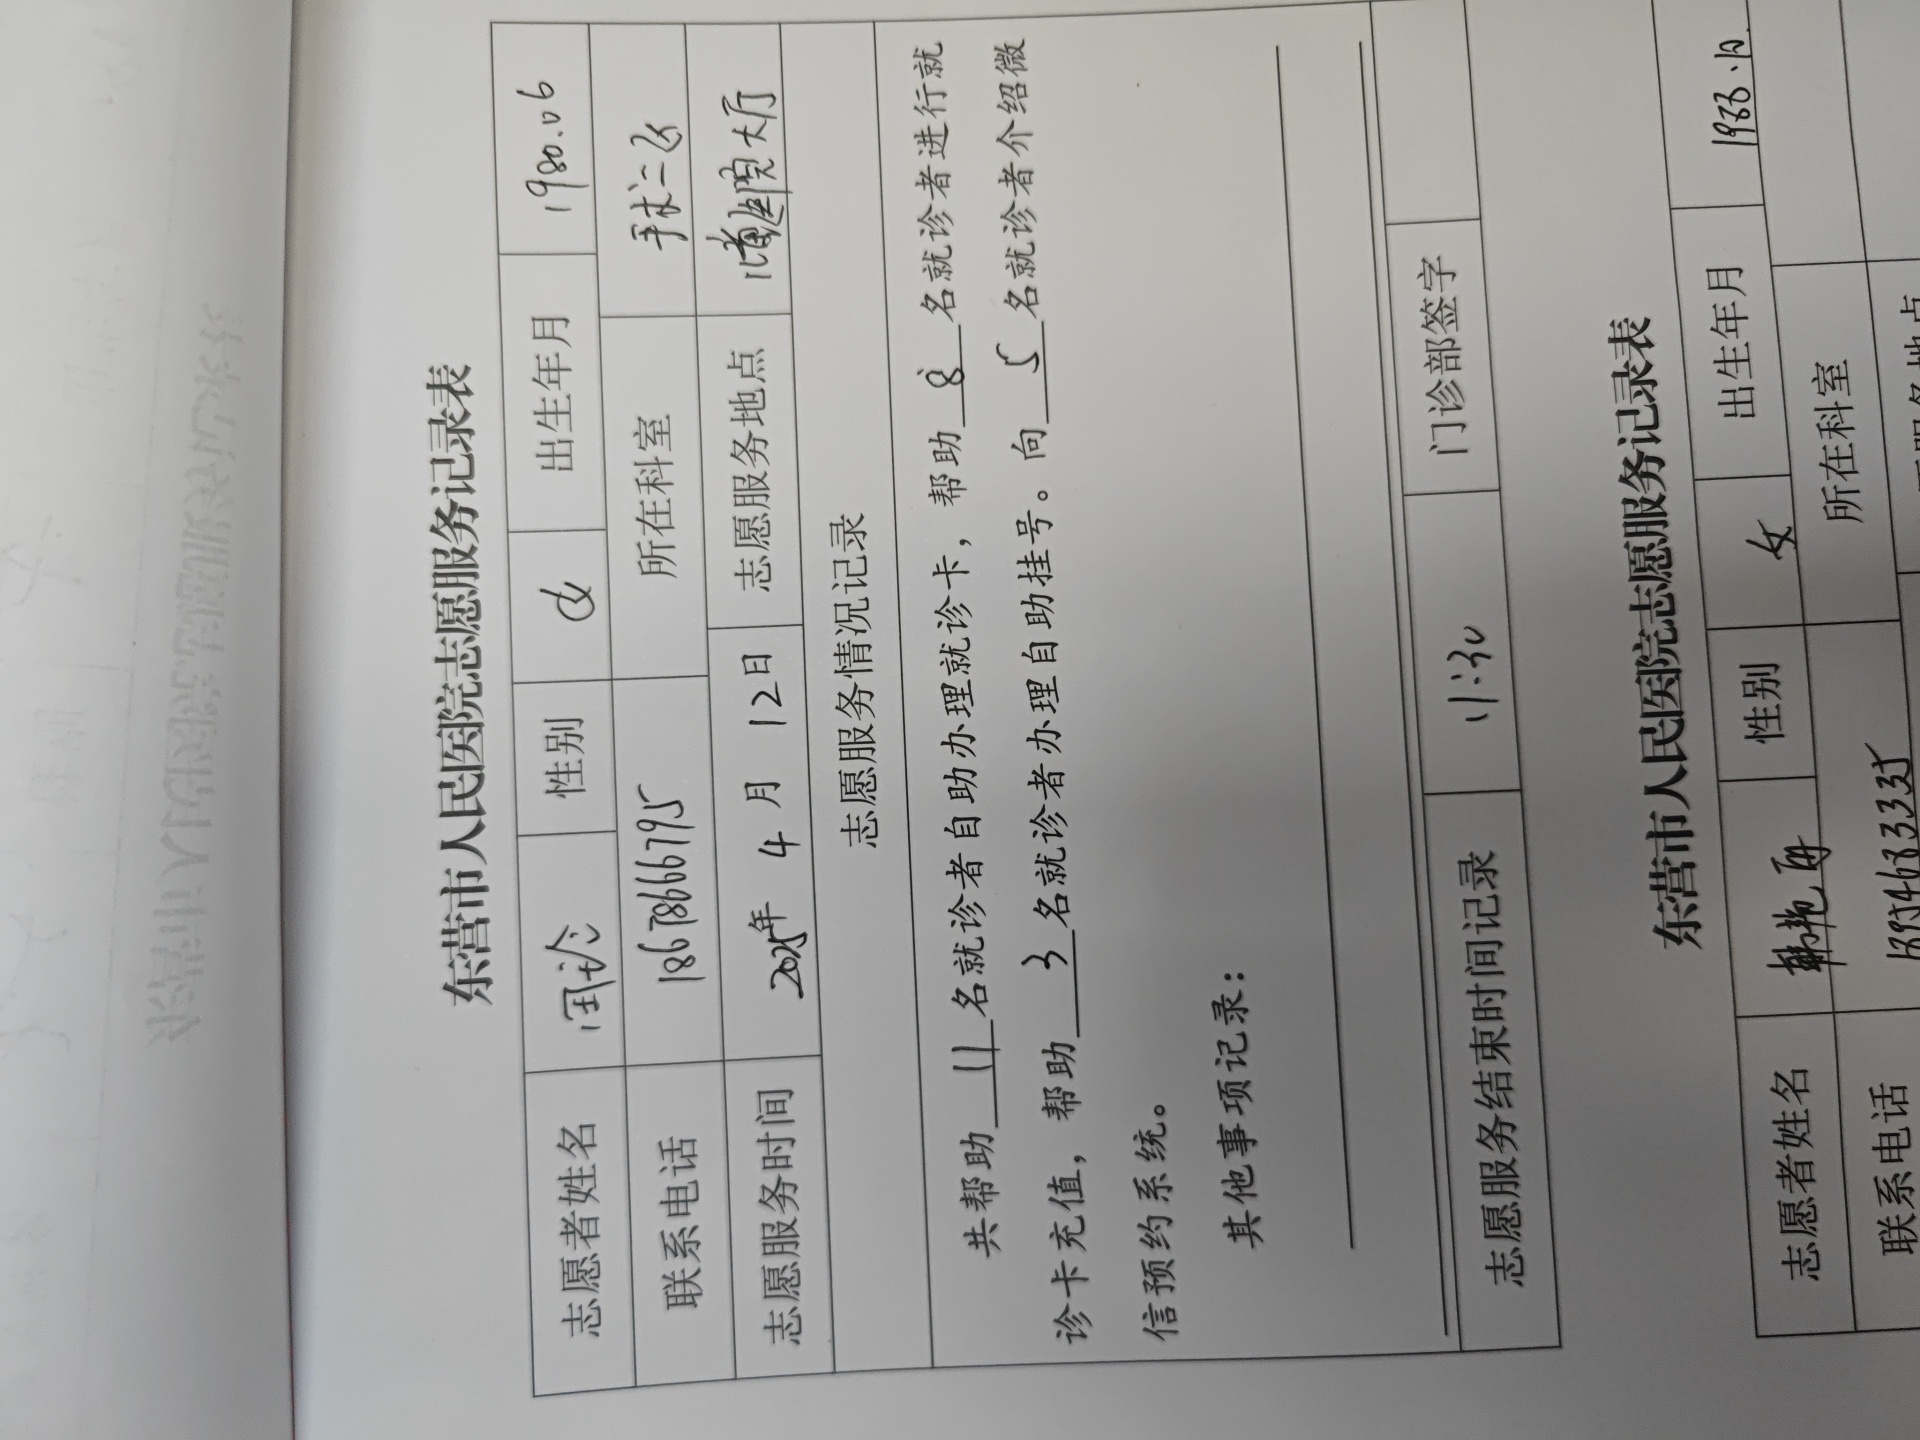 东营市人民医院志愿服务记录表
志愿者姓名 闫玲 性别 女 出生年月 1980.06
联系电话 18678666795 所在科室 手术二部
志愿服务时间 2025年 4 月 12日 志愿服务地点 院大厅
志愿服务情况记录
共帮助 11 名就诊者自助办理就诊卡，帮助 8 名就诊者进行就
诊卡充值，帮助 3 名就诊者办理自助挂号。向 5 名就诊者介绍微
信预约系统。
其他事项记录：
志愿服务结束时间记录 11:30 门诊部签字
东营市人民医院志愿服务记录表
志愿者姓名 韩艳 性别 女 出生年月
联系电话 所在科室